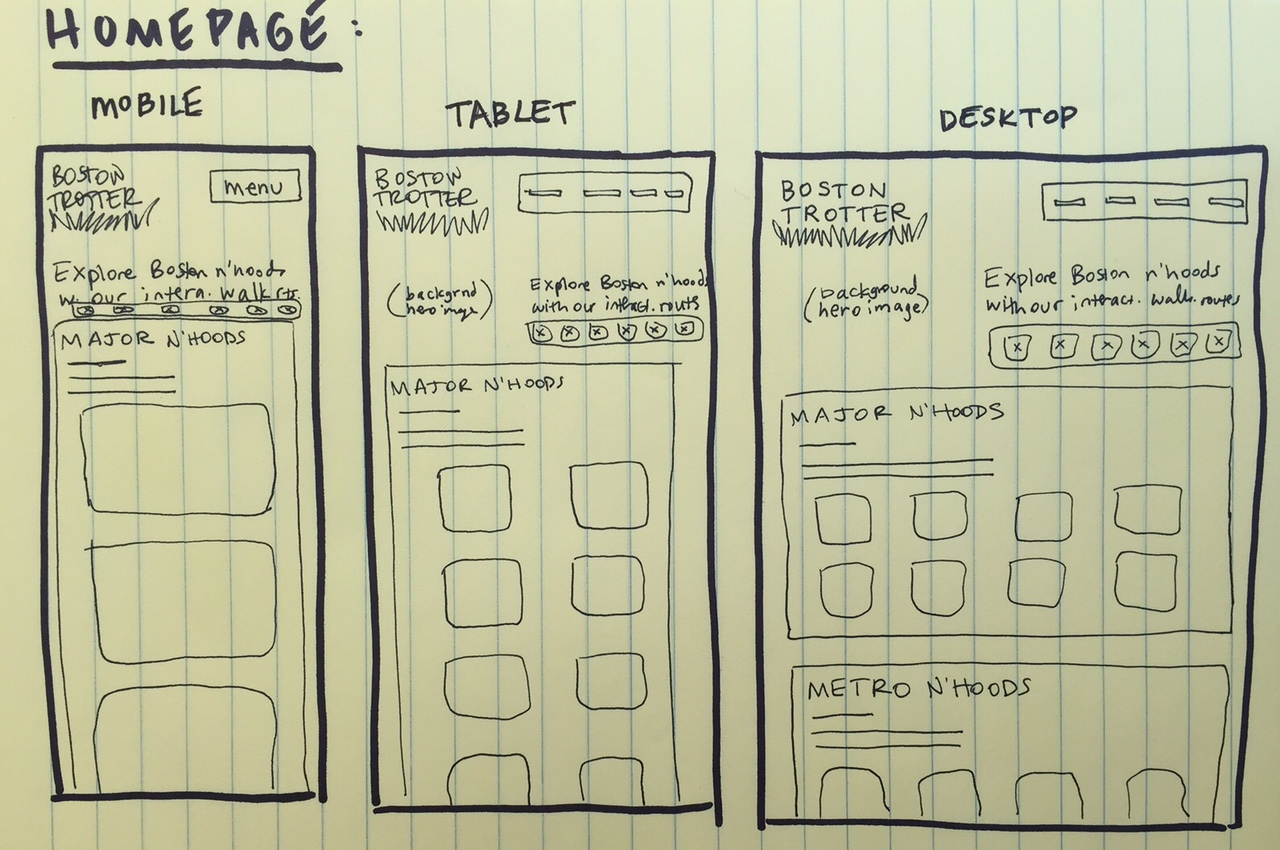 HOMEPAGE:
MOBILE
BOSTON
TROTTER
menu
Explore Boston n'hoods
w. our intera. walk rts
MAJOR N'HOODS
TABLET
BOSTON
TROTTER
(backgrnd
hero image)
Explore Boston n'hoods
with our interact. routs
MAJOR N'HOODS
DESKTOP
BOSTON
TROTTER
(background
hero image)
Explore Boston n'hoods
with our interact. walk. routes
MAJOR N'HOODS
METRO N'HOODS